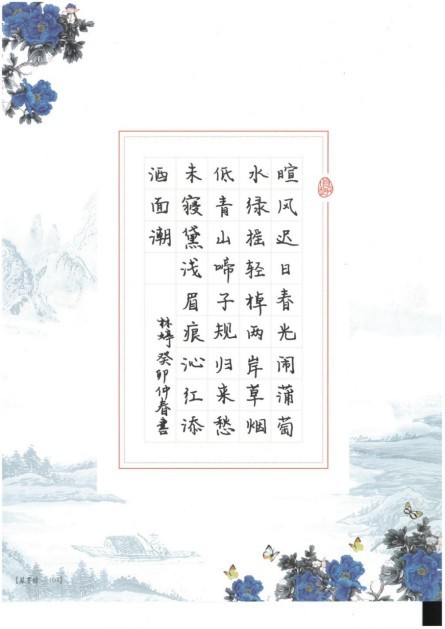 暄风迟日春光闹蒲萄
水绿摇轻棹两岸草烟
低青山啼子规归来愁
未寝黛浅眉痕沁红添
酒面潮
林婷癸卯仲春書